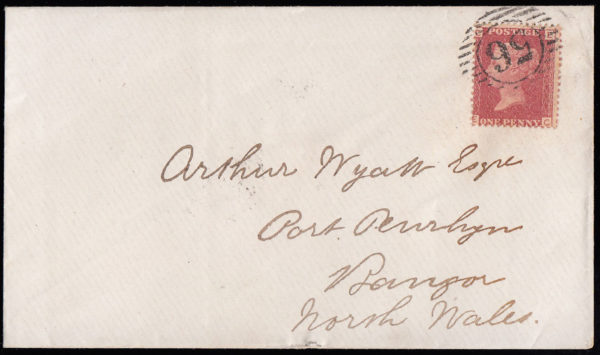 POSTAGE
95
ONE PENNY
Arthur Wyatt Esqre
Port Penrhyn
Bangor
North Wales.